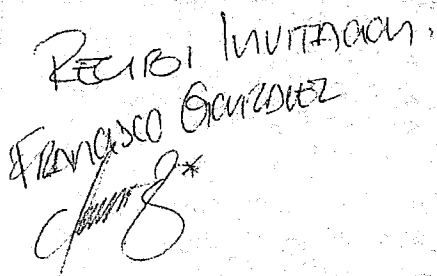 RECIBI INVITACION.
FRANCISCO GONZALEZ